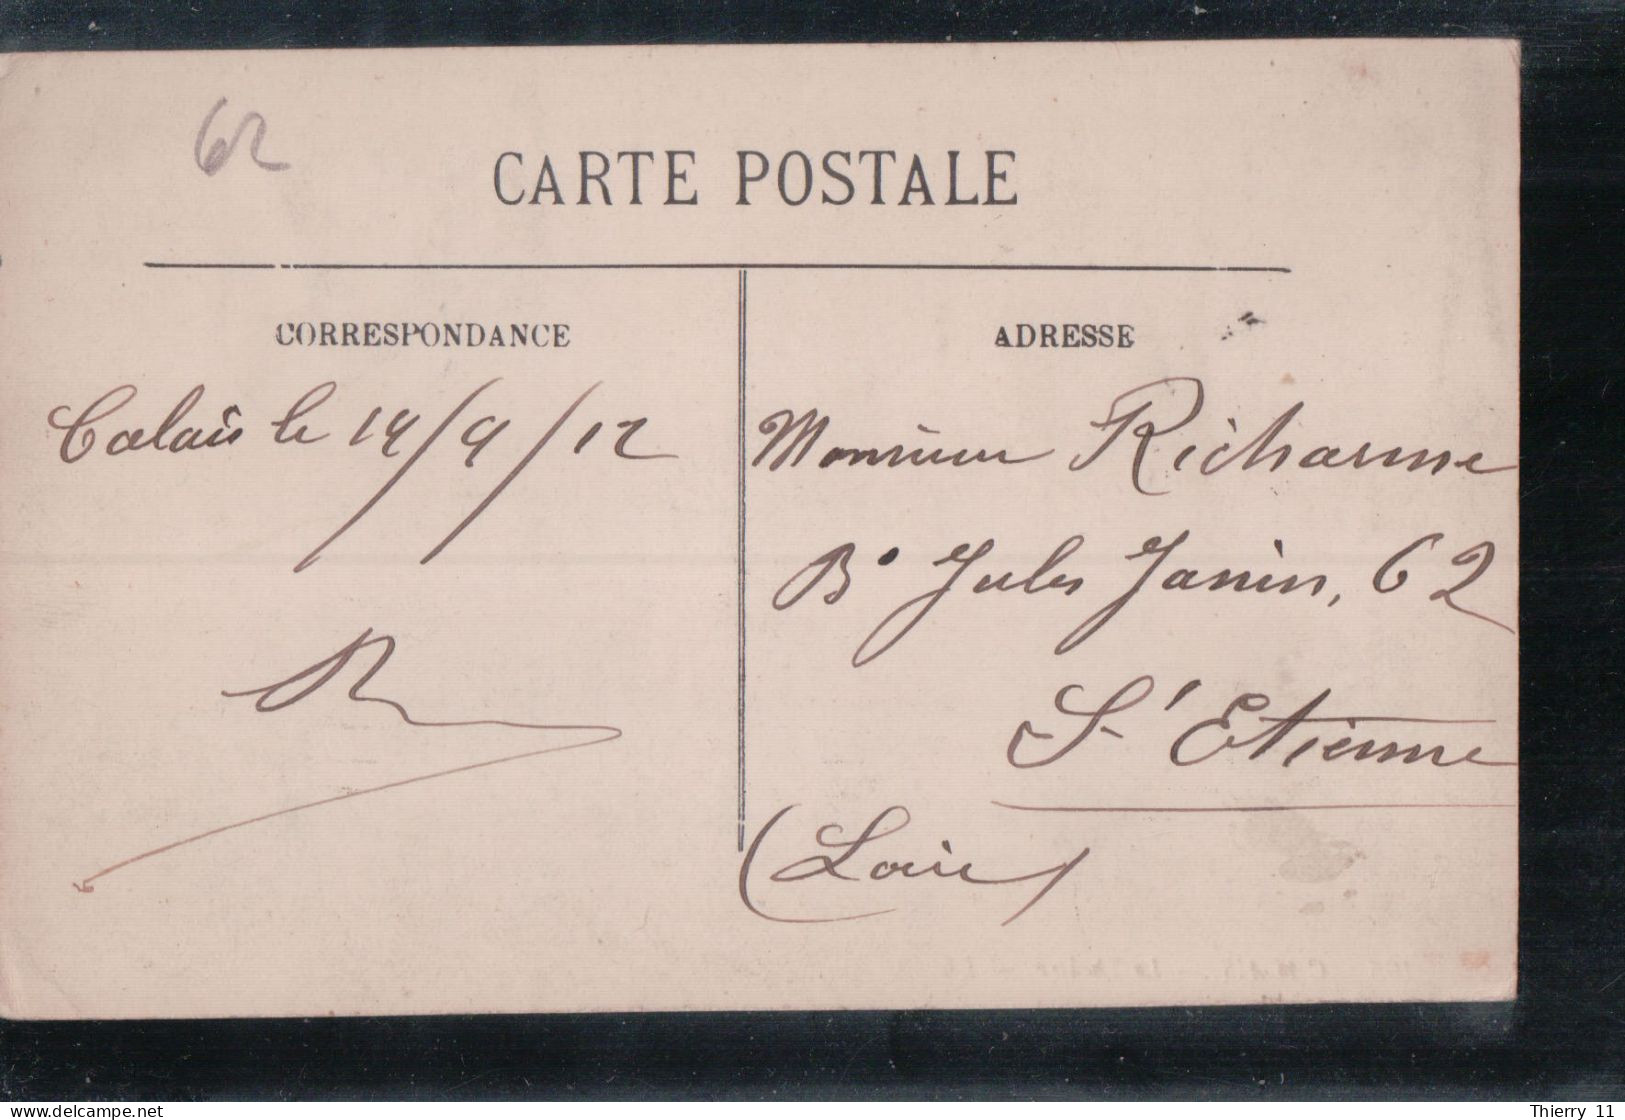 62
CARTE POSTALE
CORRESPONDANCE
Calais le 14/9/12
ADRESSE
Monsieur Richarme
Bd Jules Janin, 62
St Etienne
(Loire)
Thierry 11